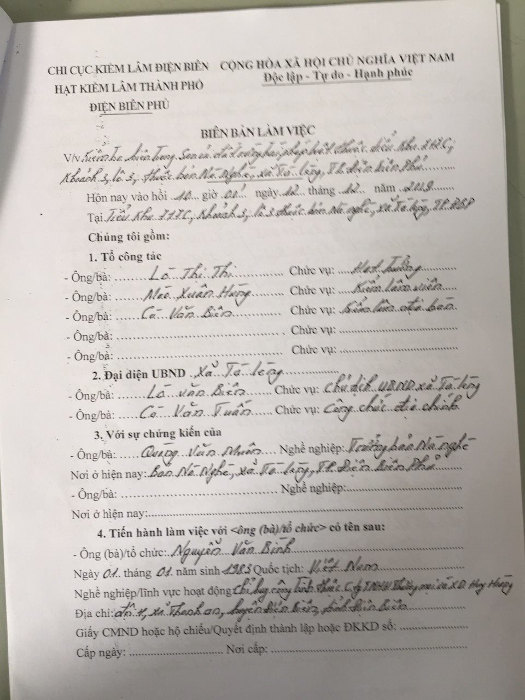 CHI CỤC KIỂM LÂM ĐIỆN BIÊN CỘNG HÒA XÃ HỘI CHỦ NGHĨA VIỆT NAM
HẠT KIỂM LÂM THÀNH PHỐ Độc lập - Tự do - Hạnh phúc
ĐIỆN BIÊN PHỦ
BIÊN BẢN LÀM VIỆC
V/v: Kiểm tra hiện trạng tiểu khu 717C,
Khoảnh 3, lô 3, thuộc bản Nà Nghè, xã Tà Lèng, TP. Điện Biên Phủ
Hôn nay vào hồi 10 giờ 01 ngày 12 tháng 12 năm
Tại Tiểu khu 717C, Khoảnh 3, lô 3 thuộc bản Nà Nghè, xã Tà Lèng, TP. ĐBP
Chúng tôi gồm:
1. Tổ công tác
- Ông/bà: Lò Thị Thi Chức vụ: Hạt Trưởng
- Ông/bà: Mào Xuân Hùng Chức vụ: Kiểm lâm viên
- Ông/bà: Cà Văn Biên Chức vụ: Kiểm lâm địa bàn
- Ông/bà: Chức vụ:
- Ông/bà: Chức vụ:
2. Đại diện UBND xã Tà Lèng
- Ông/bà: Lò Văn Biên Chức vụ: Chủ tịch UBND xã Tà Lèng
- Ông/bà: Cà Văn Tuấn Chức vụ: Công chức địa chính
3. Với sự chứng kiến của
- Ông/bà: Quàng Văn Nhiên Nghề nghiệp: Trưởng bản Nà Nghè
Nơi ở hiện nay: Bản Nà Nghè, xã Tà Lèng, TP. Điện Biên Phủ
- Ông/bà: Nghề nghiệp:
Nơi ở hiện nay:
4. Tiến hành làm việc với <ông (bà)/tổ chức> có tên sau:
- Ông (bà)/tổ chức: Nguyễn Văn Bình
Ngày 01 tháng 01 năm sinh 1983 Quốc tịch: Việt Nam
Nghề nghiệp/lĩnh vực hoạt động Chỉ huy công trình thuộc Cty TNHH Thương mại và XD Huy Hoàng
Địa chỉ: xã Thanh An, huyện Điện Biên, tỉnh Điện Biên
Giấy CMND hoặc hộ chiếu/Quyết định thành lập hoặc ĐKKD số:
Cấp ngày: Nơi cấp: